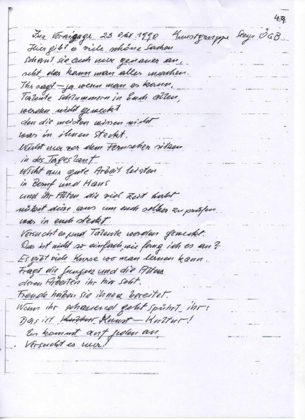 49
Zur Vernissage 23 Okt 1990 Kunstgruppe ÖGB
Hier gibt es viele schöne Sachen
schaut sie euch nur genauer an,
seht, das kann man alles machen.
Ihr sagt - ja wenn man es kann.
Talente schlummern in Euch allen,
werden nicht geweckt
den die meisten wissen nicht
was in ihnen steckt.
Nicht nur vor dem Fernseher sitzen
in des Tages lauf
Nicht nur gute Arbeit leisten
in Beruf und Haus
und ihr Alten die viel Zeit habt
nützt diese aus um euch selber zu prüfen
was in euch steckt
Versucht es und Talente werden geweckt.
Das ist nicht so einfach, wie fang ich es an?
Es gibt viele Kurse wo man lernen kann.
Fragt die jungen und die Alten
deren Arbeiten ihr hier seht.
Freude haben sie ihnen bereitet.
Wenn ihr schauend geht spührt ihr:
Das ist Kunst - Kultur!
Es kommt auf jeden an,
Versucht es nur!